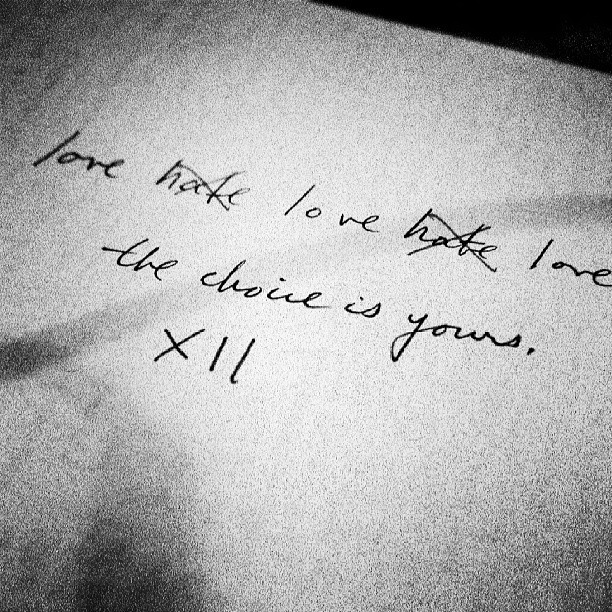 love hate love hate love
the choice is yours.
XII